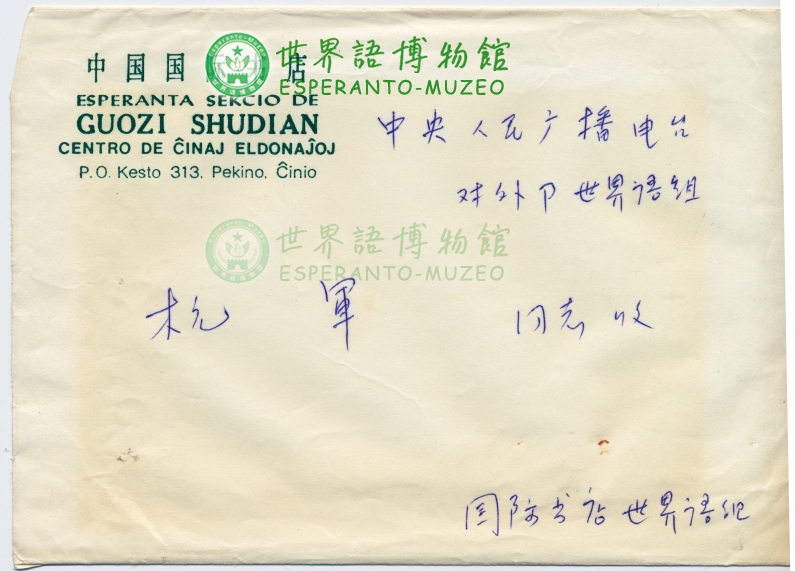 中国国 店
世界語博物館
ESPERANTO-MUZEO
ESPERANTA SEKCIO DE
GUOZI SHUDIAN
CENTRO DE ĈINAJ ELDONAĴOJ
P.O. Kesto 313, Pekino, Ĉinio
中央人民广播电台
对外卩世界语组
世界語博物館
ESPERANTO-MUZEO
軍 同志收
国际书店世界语组